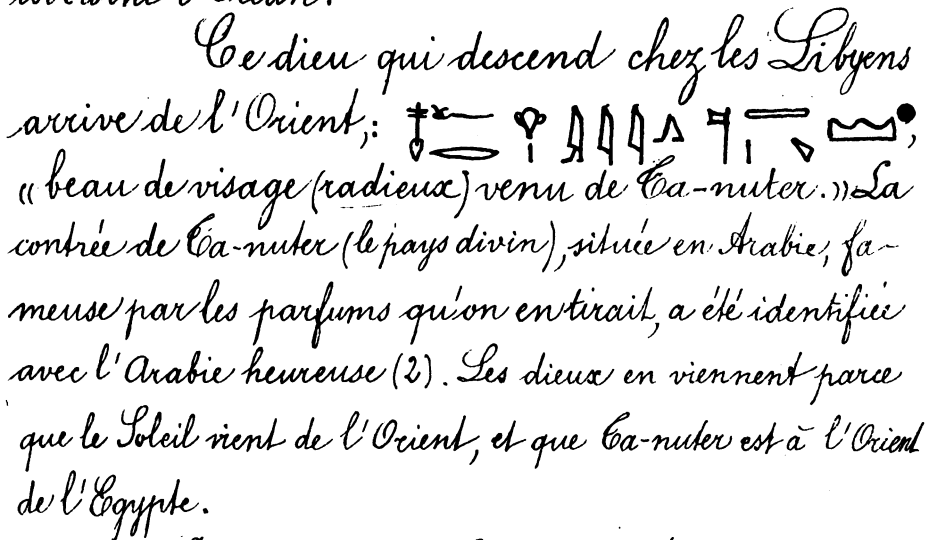 Ce dieu qui descend chez les Libyens
arrive de l'Orient,: 𓄤𓆑𓂋𓁷𓏤𓇋𓇋𓇋𓂻𓊹𓇾𓏤𓈎𓈉,
« beau de visage (radieux) venu de Ta-nuter.» La
contrée de Ta-nuter (le pays divin), située en Arabie, fa-
meuse par les parfums qu'on en tirait, a été identifiée
avec l'Arabie heureuse (2). Les dieux en viennent parce
que le Soleil vient de l'Orient, et que Ta-nuter est à l'Orient
de l'Egypte.